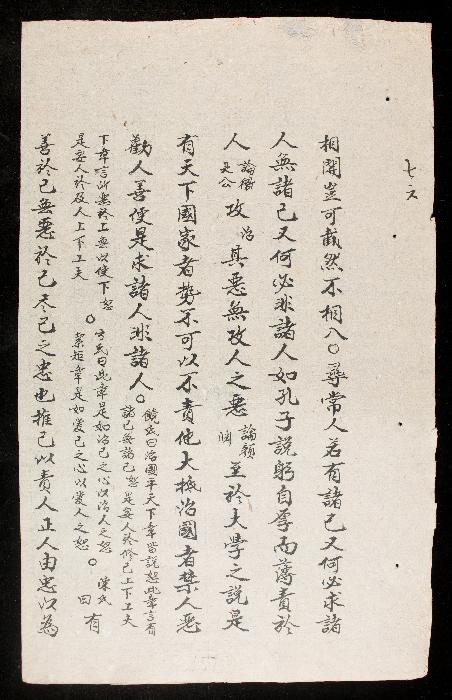 七六
相關豈可截然不相入○尋常人若有諸己又何必求諸
人無諸己又何必非諸人如孔子說躬自厚而薄責於
人論衛灵公攻治其惡無攻人之惡論顏淵至於大學之說是
有天下國家者勢不可以不責他大抵治國者禁人惡
勸人善便是求諸人非諸人○饒氏曰治國平天下章皆說恕此章言有
諸己無諸己恕是要人於修己上下工夫
下章言所惡於上毋以使下恕
是要人於及人上下工夫○方氏曰此章是如治己之心以治人之恕
絜矩章是如愛己之心以愛人之恕○陳氏曰有
善於己無惡於己尽己之忠也推己以責人正人由忠以為